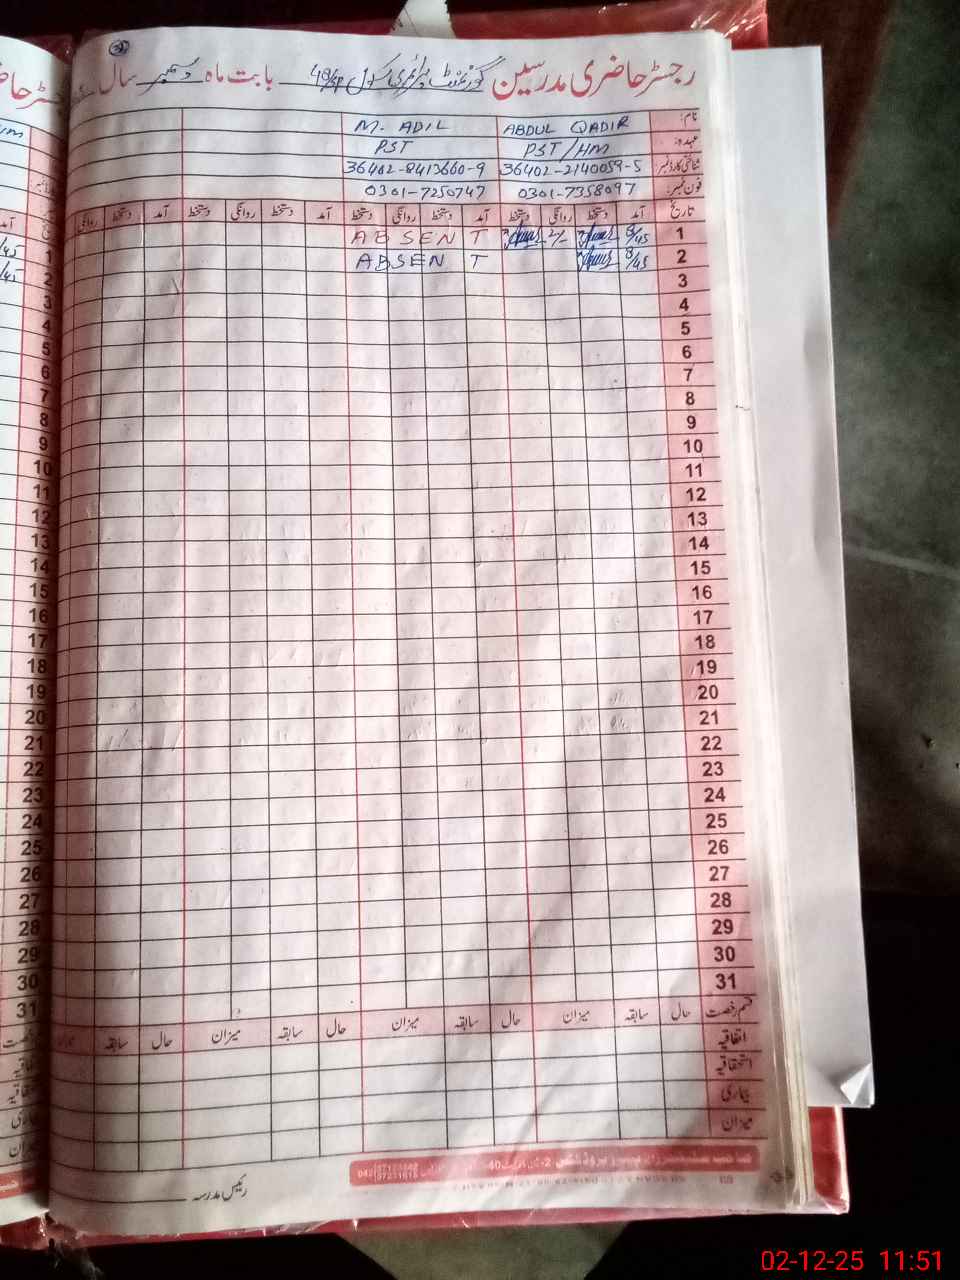 رجسٹر حاضری مدرسین گورنمنٹ پرائمری سکول 48/SP بابت ماہ دسمبر سال
نام: ABDUL QADIR M. ADIL
عہدہ: PST/HM PST
شناختی کارڈ نمبر: 36402-2140059-5 36402-8413660-9
فون نمبر: 0301-7358097 0301-7250747
تاریخ آمد دستخط روانگی دستخط آمد دستخط روانگی دستخط آمد دستخط روانگی دستخط آمد دستخط روانگی
1 8/45 2/- ABSENT
2 8/45 ABSENT
3
4
5
6
7
8
9
10
11
12
13
14
15
16
17
18
19
20
21
22
23
24
25
26
27
28
29
30
31
قسم رخصت حال سابقہ میزان حال سابقہ میزان حال سابقہ میزان حال سابقہ
اتفاقیہ
استحقاقیہ
بیماری
میزان
رئیس مدرسہ
02-12-25 11:51